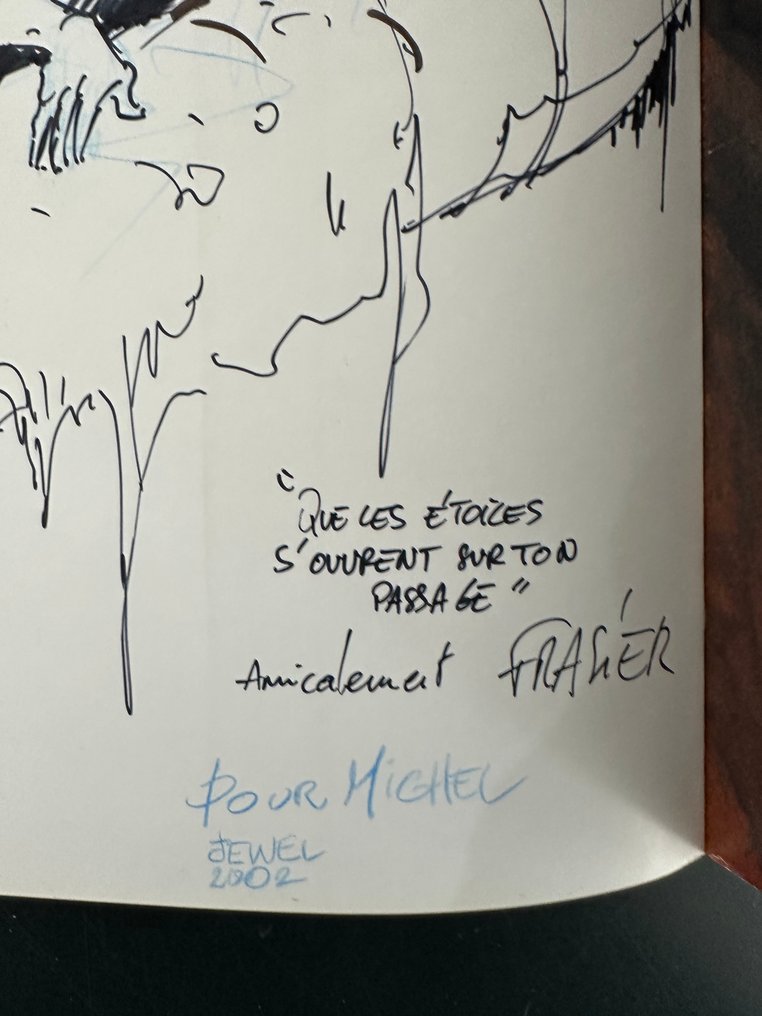 "QUE LES ÉTOILES
S'OUVRENT SUR TON
PASSAGE"
Amicalement FRASIÉR
POUR MICHEL
JEWEL
2002